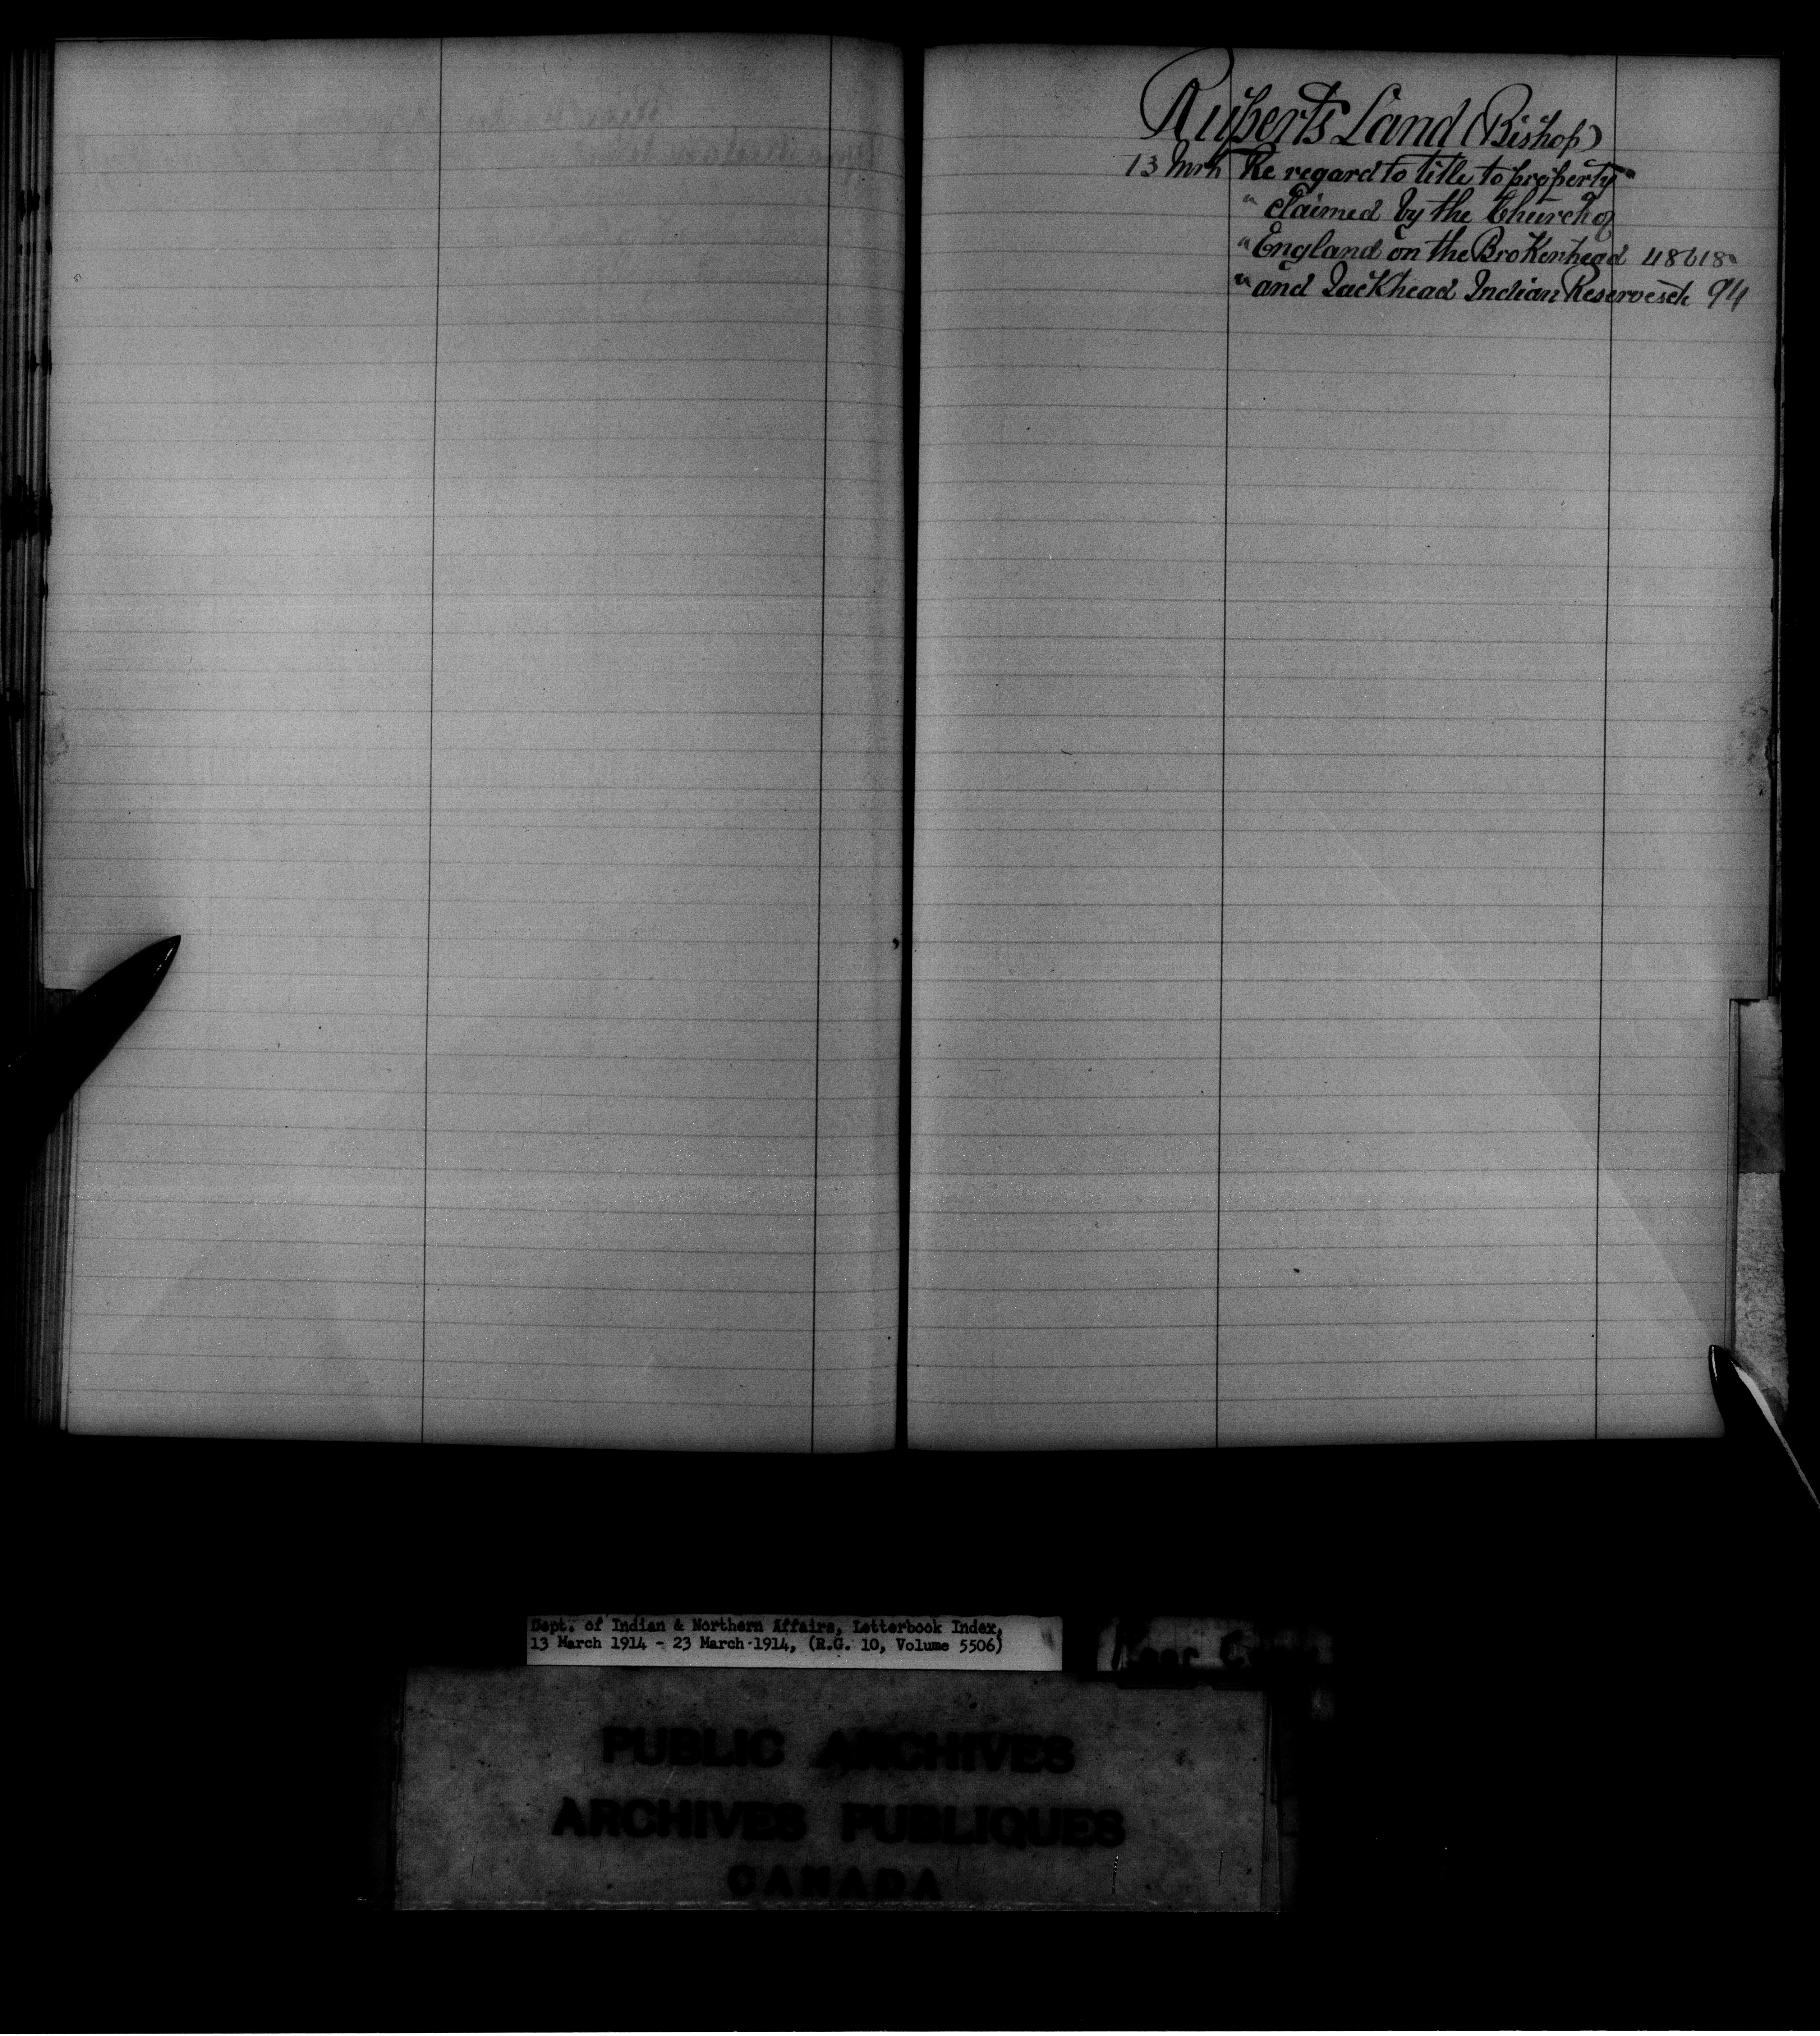 Ruperts Land (Bishop)
13 Mrh Re regard to title to property "
" claimed by the Church of
" England on the Brokenhead 48618"
" and Jackhead Indian Reserves etc 94
Dept. of Indian & Northern Affairs, Letterbook Index,
13 March 1914 - 23 March 1914, (R.G. 10, Volume 5506)
PUBLIC ARCHIVES
ARCHIVES PUBLIQUES
CANADA